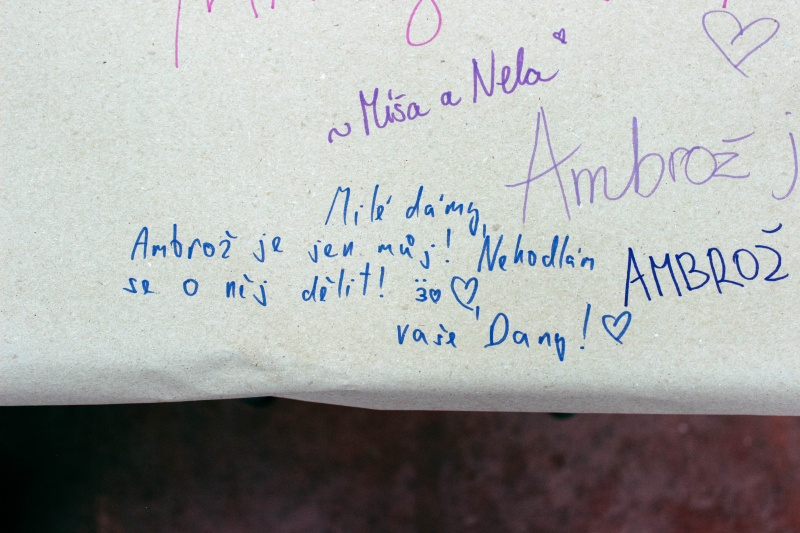 ~ Míša a Nela
Ambrož j
Milé dámy,
Ambrož je jen můj! Nehodlám
se o něj dělit!
AMBROŽ
vaše Dany!